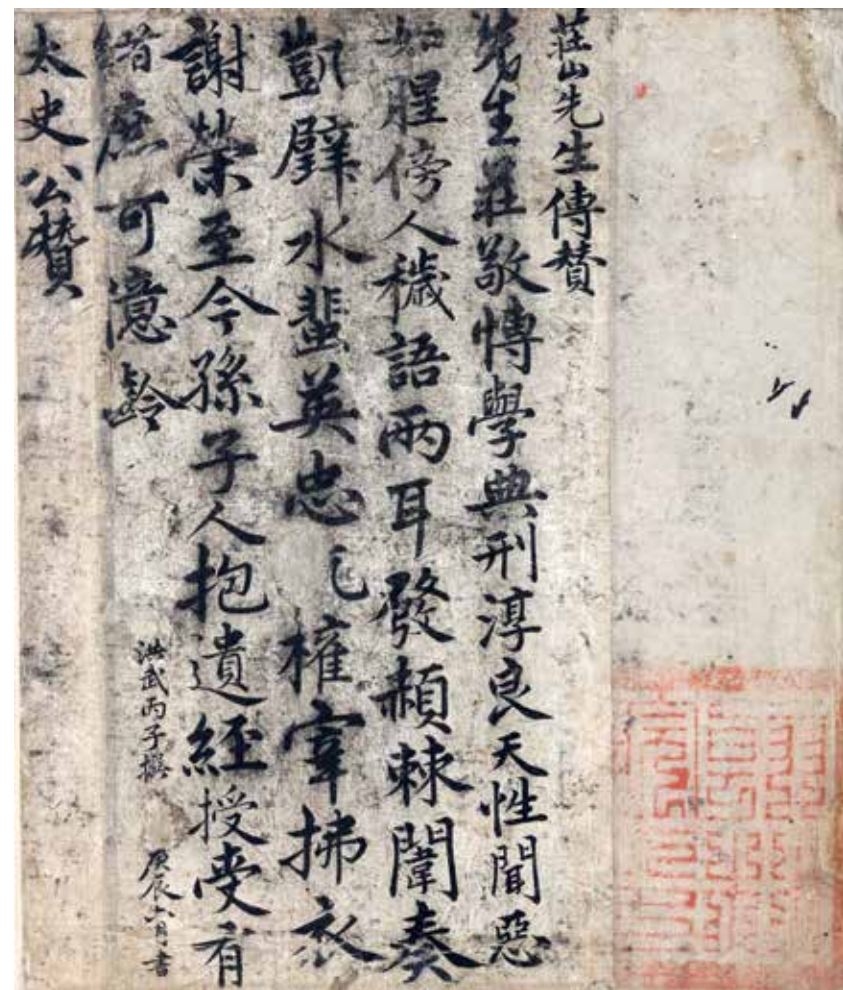 莊山先生傳賛
先生莊敬博學典刑淳良天性聞惡
如腥傍人穢語兩耳發赬棘闈奏
凱璧水蜚英忠權宰拂衣
謝榮至今孫子人抱遺經授受有
緒庶可憶齡
洪武丙子撰　庚辰六月書
太史公贊